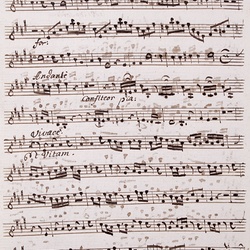 for:
Andante
Confiteor pia:
Vivace
Et Vitam.